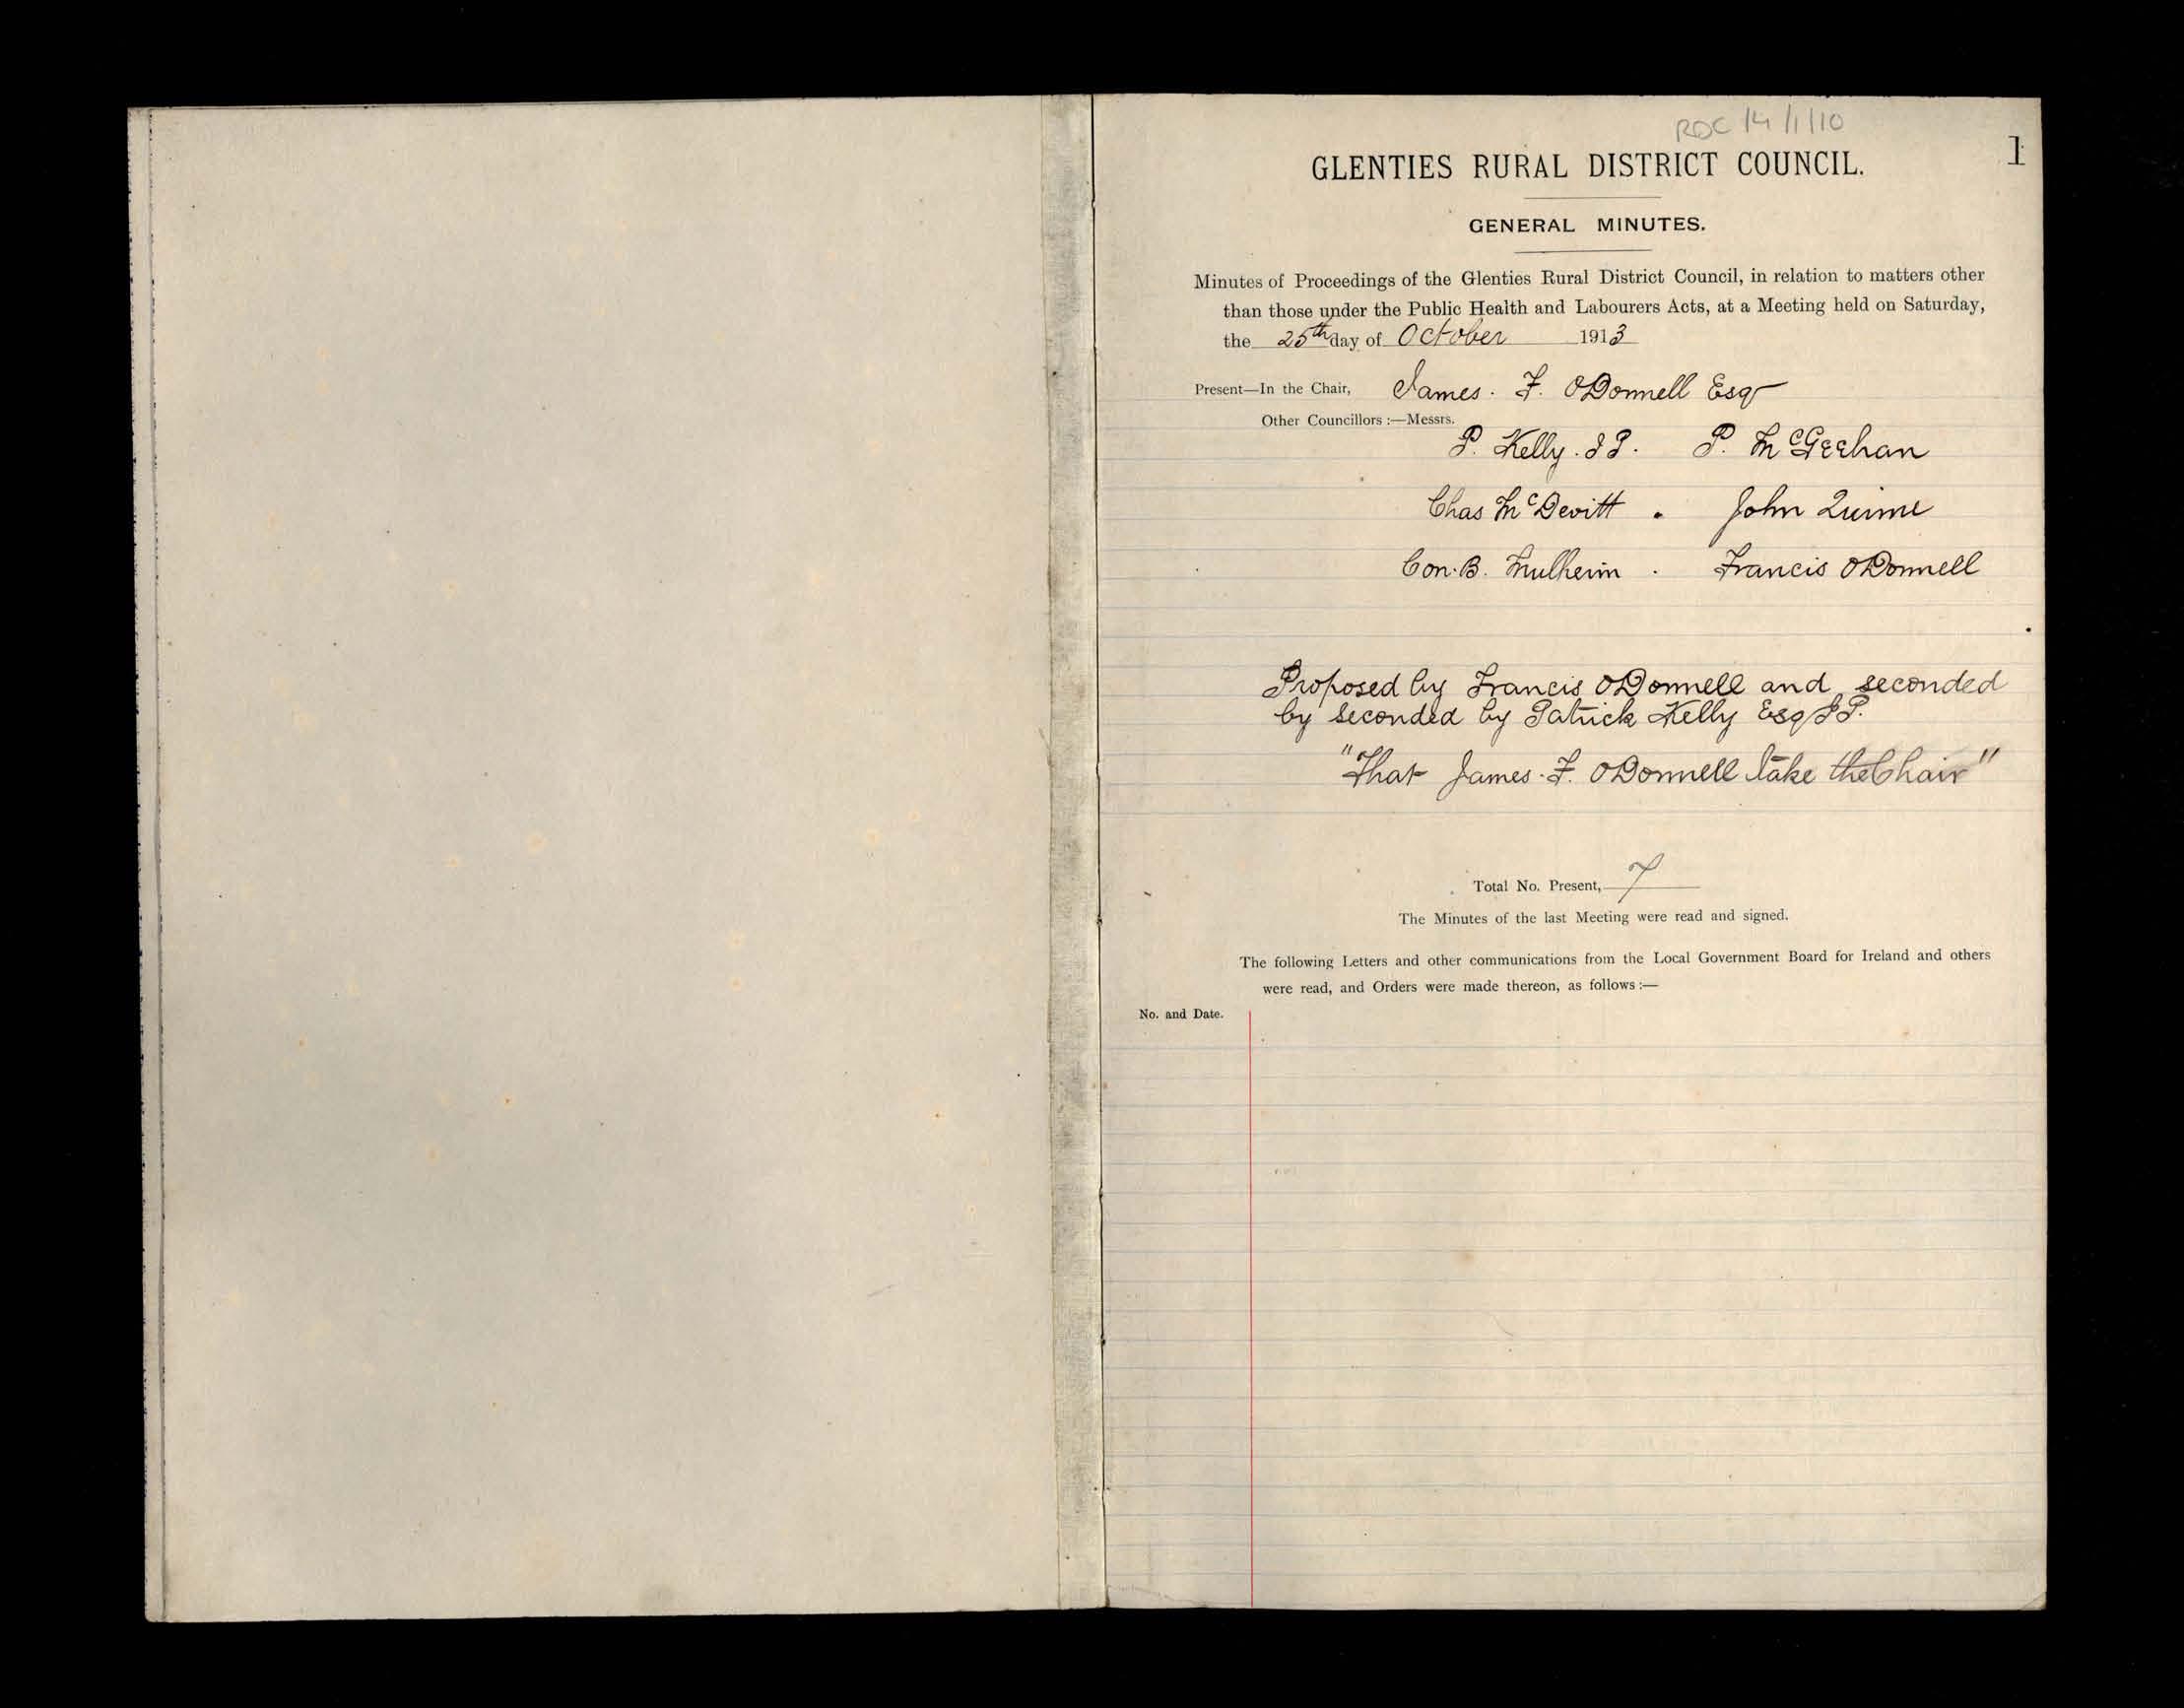 RDC 14/1/10
1
GLENTIES RURAL DISTRICT COUNCIL.
GENERAL MINUTES.
Minutes of Proceedings of the Glenties Rural District Council, in relation to matters other
than those under the Public Health and Labourers Acts, at a Meeting held on Saturday,
the 25th day of October 1913
Present—In the Chair, James. F. O'Donnell Esq
Other Councillors :—Messrs.
P. Kelly. J P. P. McGeehan
Chas McDevitt . John Quinn
Con. B. Mulhern . Francis O'Donnell
Proposed by Francis O'Donnell and seconded
by seconded by Patrick Kelly Esq J P.
"That James. F. O'Donnell take the Chair"
Total No. Present, 7
The Minutes of the last Meeting were read and signed.
The following Letters and other communications from the Local Government Board for Ireland and others
were read, and Orders were made thereon, as follows :—
No. and Date.